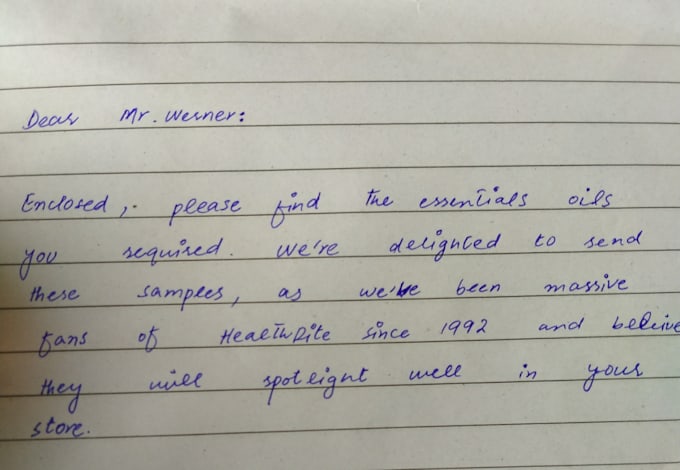 Dear Mr. Werner:
Enclosed, please find the essentials oils
you required. We're delighted to send
these samples, as we've been massive
fans of HealthRite since 1992 and beleive
they will spotlight well in your
store.